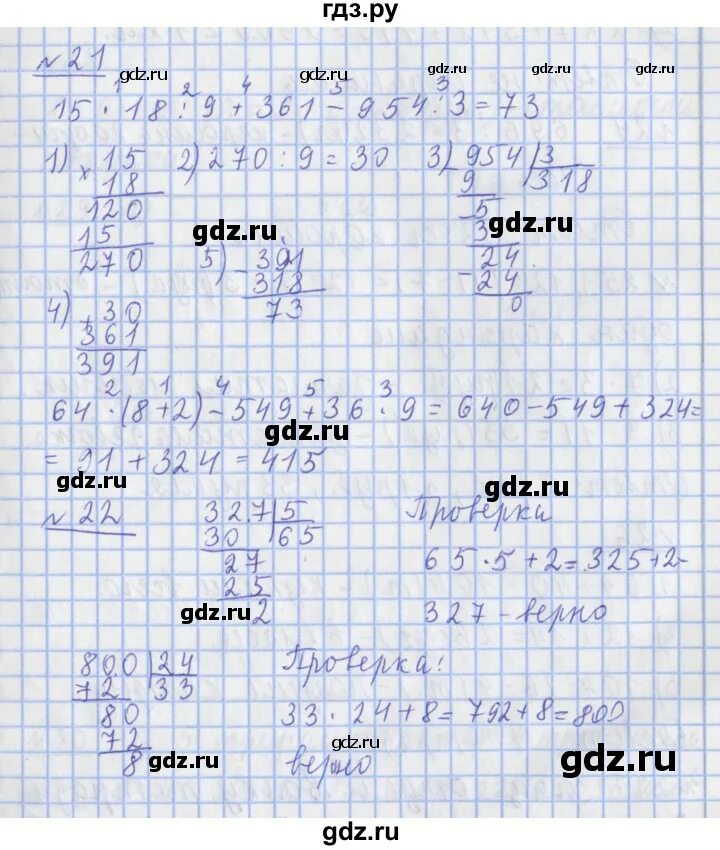 гдз.ру
№ 21 gdz.ru gdz.ru gdz.ru
1 2 4 5 3
15 · 18 : 9 + 361 - 954 : 3 = 73
1) × 15 2) 270 : 9 = 30 3) 954 | 3
18 9 318
120 5
15 gdz.ru 3 gdz.ru
270 5) - 391 24
318 - 24
4) + 30 73 0
361
391
2 1 4 5 3
64 · (8+2) - 549 + 36 · 9 = 640 - 549 + 324 =
gdz.ru
= 91 + 324 = 415
gdz.ru gdz.ru
№ 22 327 | 5 Проверка
30 65
27 65 · 5 + 2 = 325 + 2 =
25
gdz.ru 2 327 - верно
800 | 24 Проверка:
72 33
80 33 · 24 + 8 = 792 + 8 = 800
72
8 gdz.ru верно gdz.ru gdz.ru
gdz.ru